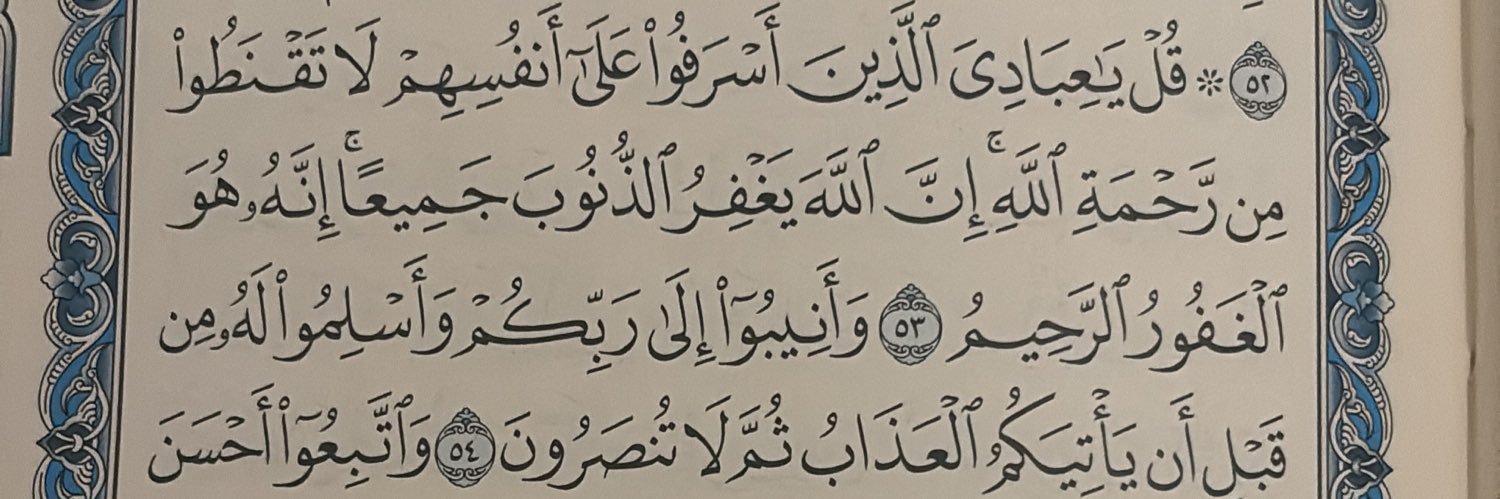 ٥٢ * قُلْ يَـٰعِبَادِىَ ٱلَّذِينَ أَسْرَفُوا۟ عَلَىٰٓ أَنفُسِهِمْ لَا تَقْنَطُوا۟
مِن رَّحْمَةِ ٱللَّهِ ۚ إِنَّ ٱللَّهَ يَغْفِرُ ٱلذُّنُوبَ جَمِيعًا ۚ إِنَّهُۥ هُوَ
ٱلْغَفُورُ ٱلرَّحِيمُ ٥٣ وَأَنِيبُوٓا۟ إِلَىٰ رَبِّكُمْ وَأَسْلِمُوا۟ لَهُۥ مِن
قَبْلِ أَن يَأْتِيَكُمُ ٱلْعَذَابُ ثُمَّ لَا تُنصَرُونَ ٥٤ وَٱتَّبِعُوٓا۟ أَحْسَنَ